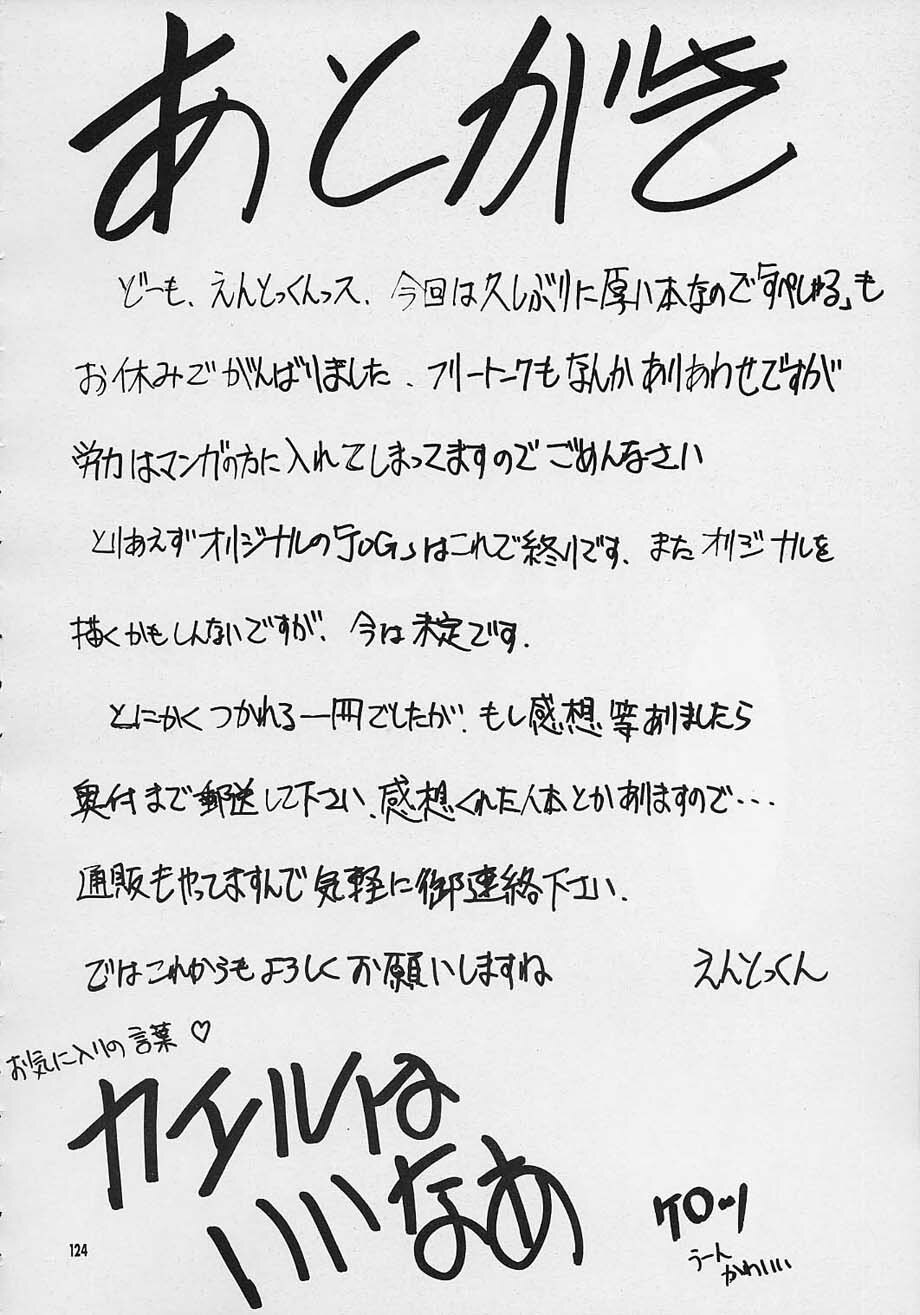 あとがき
どーも、えんとっくんっス、今回は久しぶりに厚い本なので「すぺしゃる」も
お休みでがんばりました、フリートークもなんかありあわせですが
労力はマンガの方に入れてしまってますのでごめんなさい
とりあえずオリジナルの「JOG」はこれで終りです、またオリジナルを
描くかもしんないですが、今は未定です、
とにかくつかれる一冊でしたが、もし感想等ありましたら
奥付まで郵送して下さい、感想くれた人本とかありますので・・・
通販もやってますんで気軽に御連絡下さい、
ではこれからもよろしくお願いしますね　えんとっくん
お気に入りの言葉♡
カイルは
いいなあ
ケロッ
うーん
かわいい
124